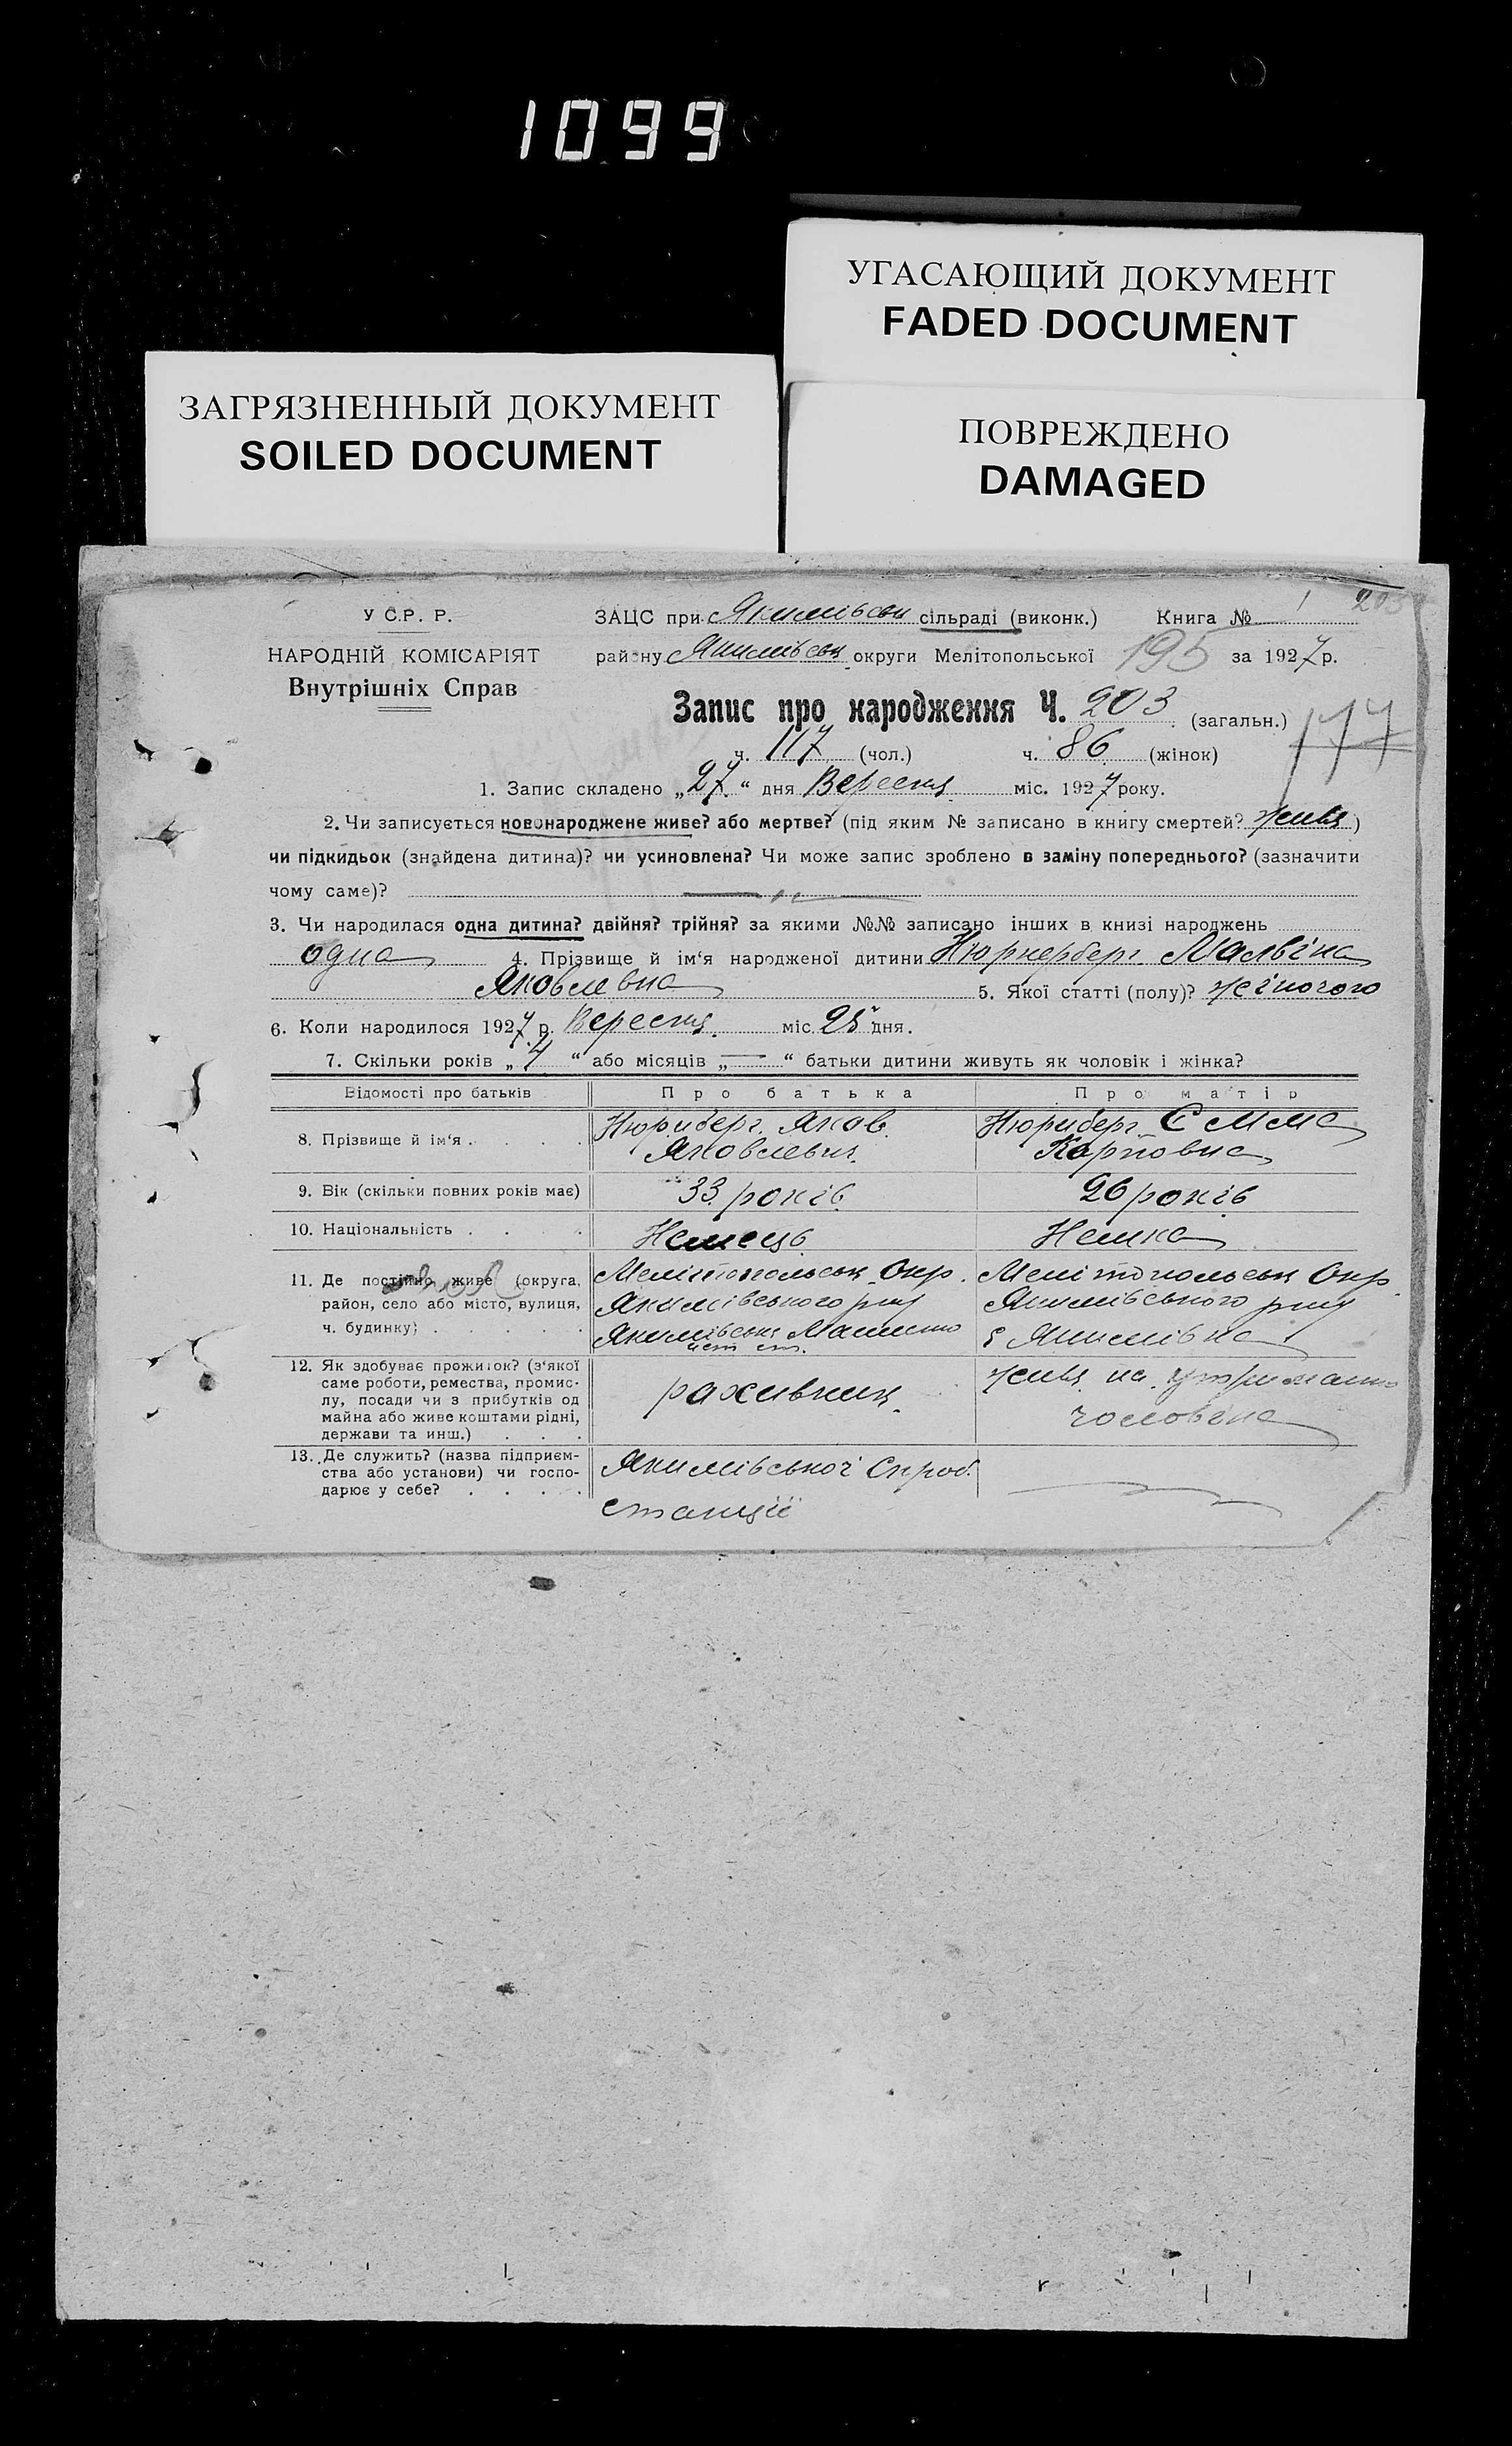 1099
УГАСАЮЩИЙ ДОКУМЕНТ
FADED DOCUMENT
ЗАГРЯЗНЕННЫЙ ДОКУМЕНТ
SOILED DOCUMENT
ПОВРЕЖДЕНО
DAMAGED
У С.Р. Р.
НАРОДНІЙ КОМІСАРІЯТ
Внутрішніх Справ
ЗАЦС при Якимівськ сільраді (виконк.) Книга № 1 203
району Якимівськ округи Мелітопольської 195 за 1927 р.
Запис про народження Ч. 203 (загальн.)
177
ч. 117 (чол.) ч. 86 (жінок)
1. Запис складено „27“ дня Вересня міс. 1927 року.
2. Чи записується новонароджене живе? або мертве? (під яким № записано в книгу смертей? живя)
чи підкидьок (знайдена дитина)? чи усиновлена? Чи може запис зроблено в заміну попереднього? (зазначити
чому саме)? — „ —
3. Чи народилася одна дитина? двійня? трійня? за якими №№ записано інших в книзі народжень
одна 4. Прізвище й ім‘я народженої дитини Нюрнерберг Мальвіна
Яковлевна 5. Якої статті (полу)? жіночого
6. Коли народилося 1927 р. Вересня міс. 25 дня.
7. Скільки років „4“ або місяців „—“ батьки дитини живуть як чоловік і жінка?
Відомості про батьків Про батька Про матір
8. Прізвище й ім‘я . . . . Нюрнберг Яков Нюрнберг Емма
Яковлевич Карповна
9. Вік (скільки повних років має) 33 років 26 років
10. Національність . . . Немець Немка
11. Де постійно живе (округа, Мелітопольськ Окр. Мелітопольськ Окр.
район, село або місто, вулиця, Якимівського р-ну Якимівського р-ну
ч. будинку) . . . . . Якимівськ с Якимівка
12. Як здобуває прожиток? (з‘якої
саме роботи, ремества, промис-
лу, посади чи з прибутків од
майна або живе коштами рідні,
держави та инш.) . . .
рахивник
живя на утриманню
чоловіка
13. Де служить? (назва підприєм-
ства або установи) чи госпо-
дарює у себе? . . . .
Якимівської
станції